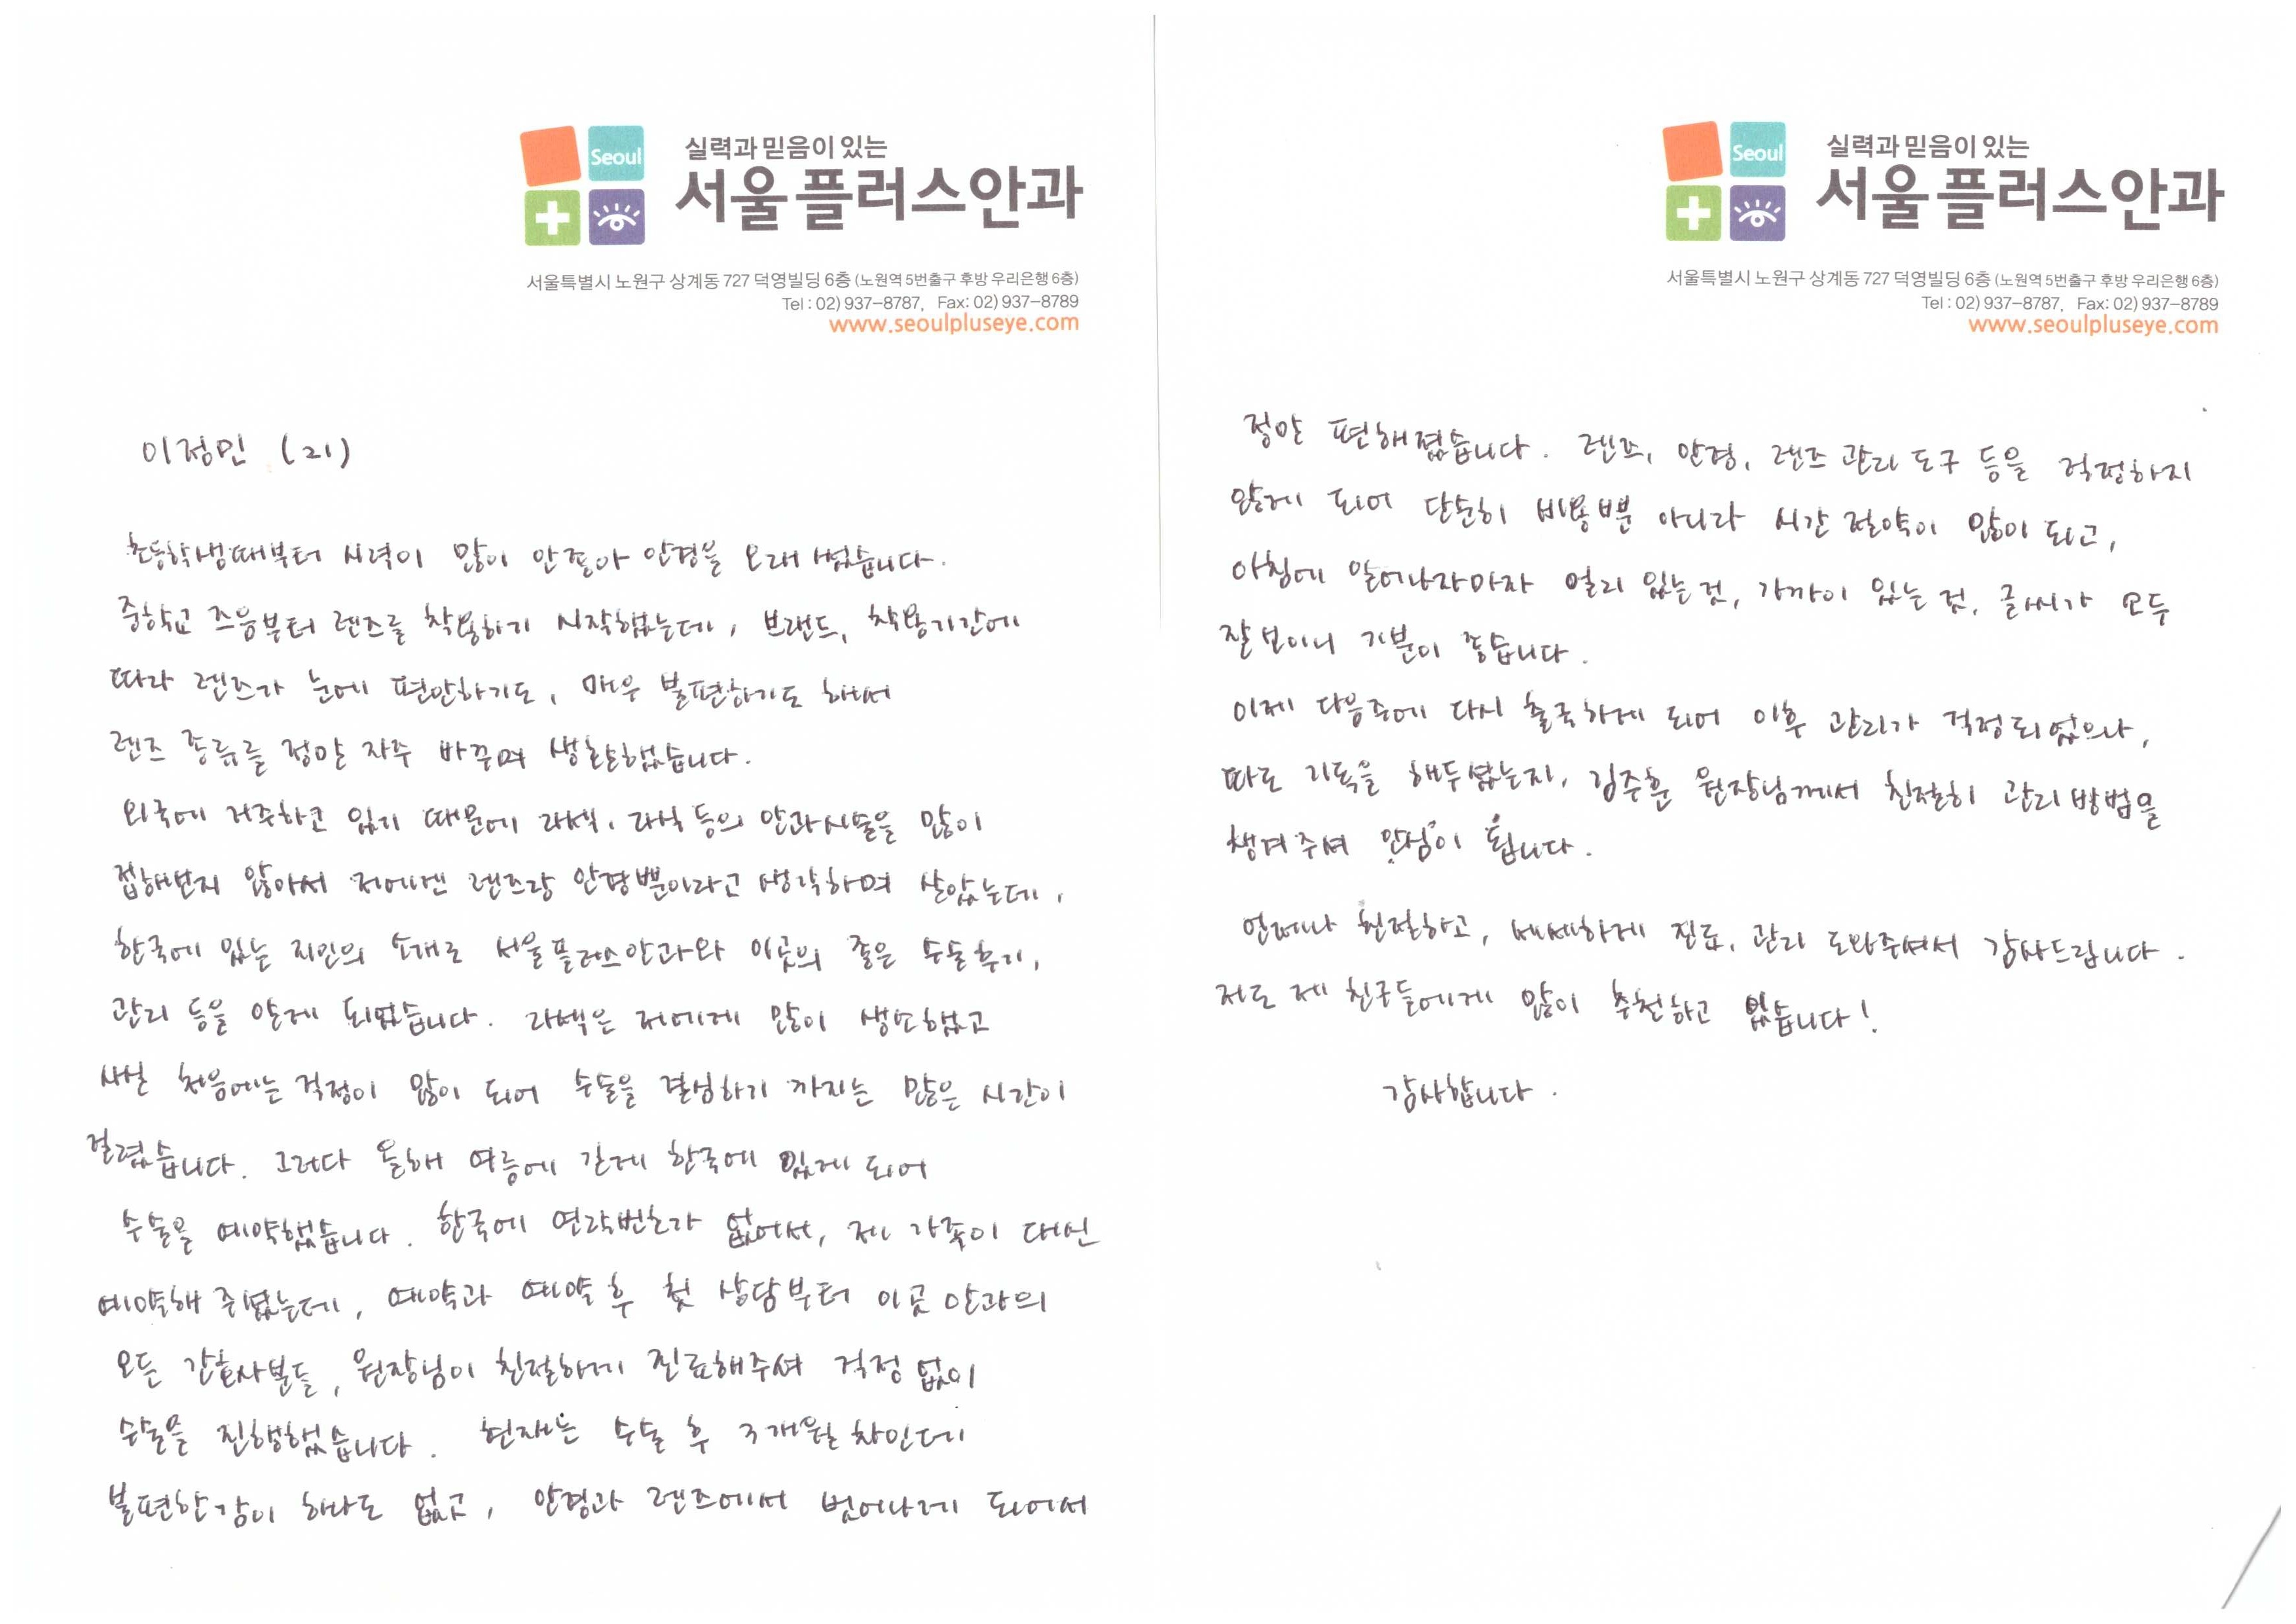 Seoul
실력과 믿음이 있는
서울플러스안과
서울특별시 노원구 상계동 727 덕영빌딩 6층 (노원역 5번출구 후방 우리은행 6층)
Tel : 02) 937-8787,  Fax: 02) 937-8789
www.seoulpluseye.com
이정민 (21)
초등학생때부터 시력이 많이 안좋아 안경을 오래 썼습니다.
중학교 즈음부터 렌즈를 착용하기 시작했는데, 브랜드, 착용기간에
따라 렌즈가 눈에 편안하기도, 매우 불편하기도 해서
렌즈 종류를 정말 자주 바꾸며 생활했습니다.
외국에 거주하고 있기 때문에 라섹, 라식 등의 안과시술을 많이
접해보지 않아서 저에겐 렌즈랑 안경뿐이라고 생각하며 살았는데,
한국에 있는 지인의 소개로 서울플러스안과와 이곳의 좋은 수술후기,
관리 등을 알게 되었습니다. 라섹은 저에게 많이 생소했고
사실 처음에는 걱정이 많이 되어 수술을 결심하기 까지는 많은 시간이
걸렸습니다. 그러다 올해 여름에 길게 한국에 있게 되어
수술을 예약했습니다. 한국에 연락번호가 없어서, 제 가족이 대신
예약해 주셨는데, 예약과 예약 후 첫 상담부터 이곳 안과의
모든 간호사분들, 원장님이 친절하게 진료해주셔 걱정 없이
수술을 진행했습니다. 현재는 수술 후 3개월 차인데
불편한감이 하나도 없고, 안경과 렌즈에서 벗어나게 되어서
Seoul
실력과 믿음이 있는
서울플러스안과
서울특별시 노원구 상계동 727 덕영빌딩 6층 (노원역 5번출구 후방 우리은행 6층)
Tel : 02) 937-8787,  Fax: 02) 937-8789
www.seoulpluseye.com
정말 편해졌습니다. 렌즈, 안경, 렌즈 관리 도구 등을 걱정하지
않게 되어 단순히 비용뿐 아니라 시간 절약이 많이 되고,
아침에 일어나자마자 멀리 있는것, 가까이 있는 것, 글씨가 모두
잘보이니 기분이 좋습니다.
이제 다음주에 다시 출국하게 되어 이후 관리가 걱정되었으나,
따로 기록을 해두셨는지, 김주훈 원장님께서 친절히 관리 방법을
챙겨주셔 안심이 됩니다.
언제나 친절하고, 세세하게 진료, 관리 도와주셔서 감사드립니다.
저도 제 친구들에게 많이 추천하고 있습니다!
감사합니다.